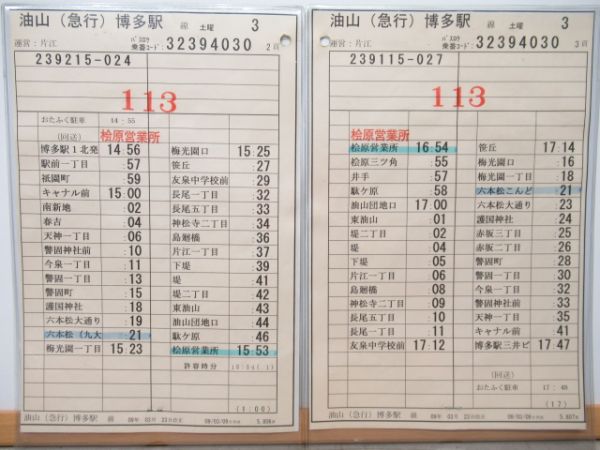 油山（急行）博多駅 線 土曜 3
運営：片江 バスロケ 乗番コード： 32394030 2頁
239215-024
113
おたふく駐車 14：55
（回送） 桧原営業所
博多駅１北発 14：56
駅前一丁目 ：57
祇園町 ：59
キャナル前 15：00
南新地 ：02
春吉 ：04
天神一丁目 ：06
警固神社前 ：10
今泉一丁目 ：11
警固一丁目 ：13
警固町 ：15
護国神社 ：18
六本松大通り ：19
六本松（九大 ：21
梅光園一丁目 15：23
梅光園口 15：25
笹丘 ：27
友泉中学校前 ：29
長尾一丁目 ：32
長尾五丁目 ：33
神松寺二丁目 ：34
島廻橋 ：36
片江一丁目 ：37
下堤 ：39
堤 ：41
堤二丁目 ：42
東油山 ：43
油山団地口 ：44
駄ケ原 ：46
桧原営業所 15：53
許容時分
（1：00）
油山（急行）博多駅 線 09年 03月 23日改正
油山（急行）博多駅 線 土曜 3
運営：片江 バスロケ 乗番コード： 32394030 3頁
239115-027
113
桧原営業所
桧原営業所 16：54
桧原三ツ角 ：55
井手 ：57
駄ケ原 ：58
油山団地口 17：00
東油山 ：01
堤二丁目 ：02
堤 ：04
下堤 ：05
片江一丁目 ：06
島廻橋 ：08
神松寺二丁目 ：09
長尾五丁目 ：10
長尾一丁目 ：11
友泉中学校前 17：12
笹丘 17：14
梅光園口 ：16
梅光園一丁目 ：18
六本松こんど ：21
六本松大通り ：23
護国神社 ：24
赤坂三丁目 ：25
赤坂二丁目 ：26
警固町 ：28
警固一丁目 ：30
今泉一丁目 ：32
警固神社前 ：33
天神一丁目 ：35
キャナル前 ：41
博多駅三井ビ 17：47
（回送）
おたふく駐車 17：48
（17）
油山（急行）博多駅 線 09年 03月 23日改正